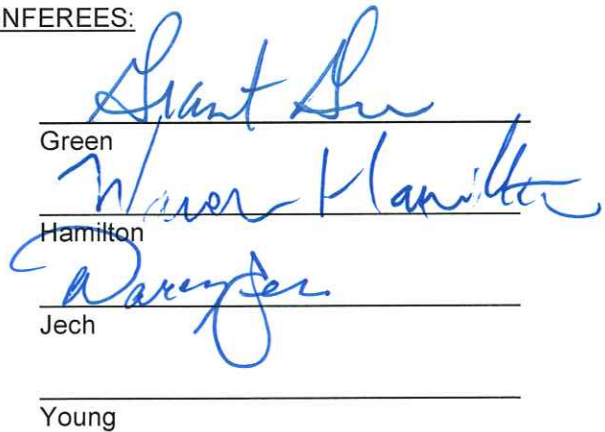 NFEREES:
Grant Green
Green
Warren Hamilton
Hamilton
Darcy Jech
Jech
Young